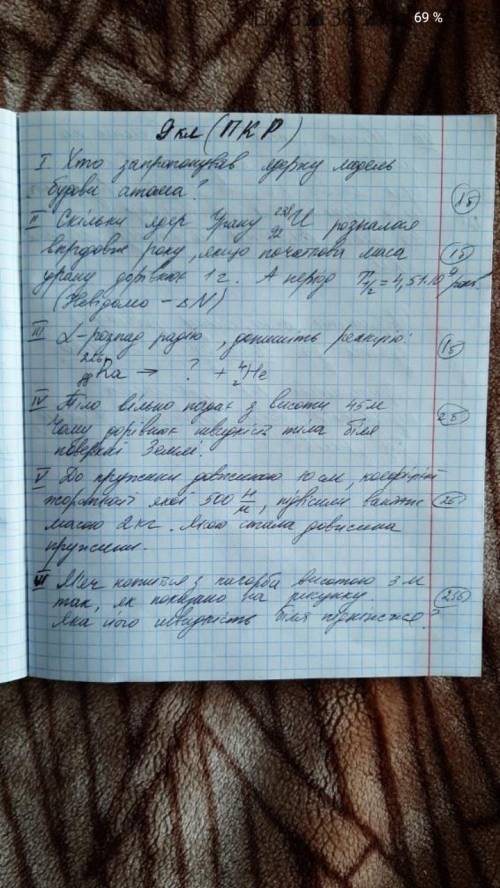 69 %
9 кл (ПКР)
I Хто запропонував ядерну модель
будови атома?
1б
II Скільки ядер Урану ²³⁸₉₂U розпалося
впродовж року, якщо початкова маса
1б
урану дорівнює 1 г. А період T½ = 4,5·10⁹
(Невідомо - ΔN)
III α-розпад радію, допишіть реакцію:
1б
₈₈Ra → ? + ⁴₂He
IV Тіло вільно падає з висоти 45 м
2б
Чому дорівнює швидкість тіла біля
поверхні Землі.
V До пружини довжиною 10 см, коефіцієнт
жорсткості якої 500 Н/м, підвісили вантаж
2б
масою 2 кг. Якою стала довжина
пружини.
М'яч котится з пагорба висотою 3 м
так, як показано на рисунку.
Яка його швидкість біля підніжжя?